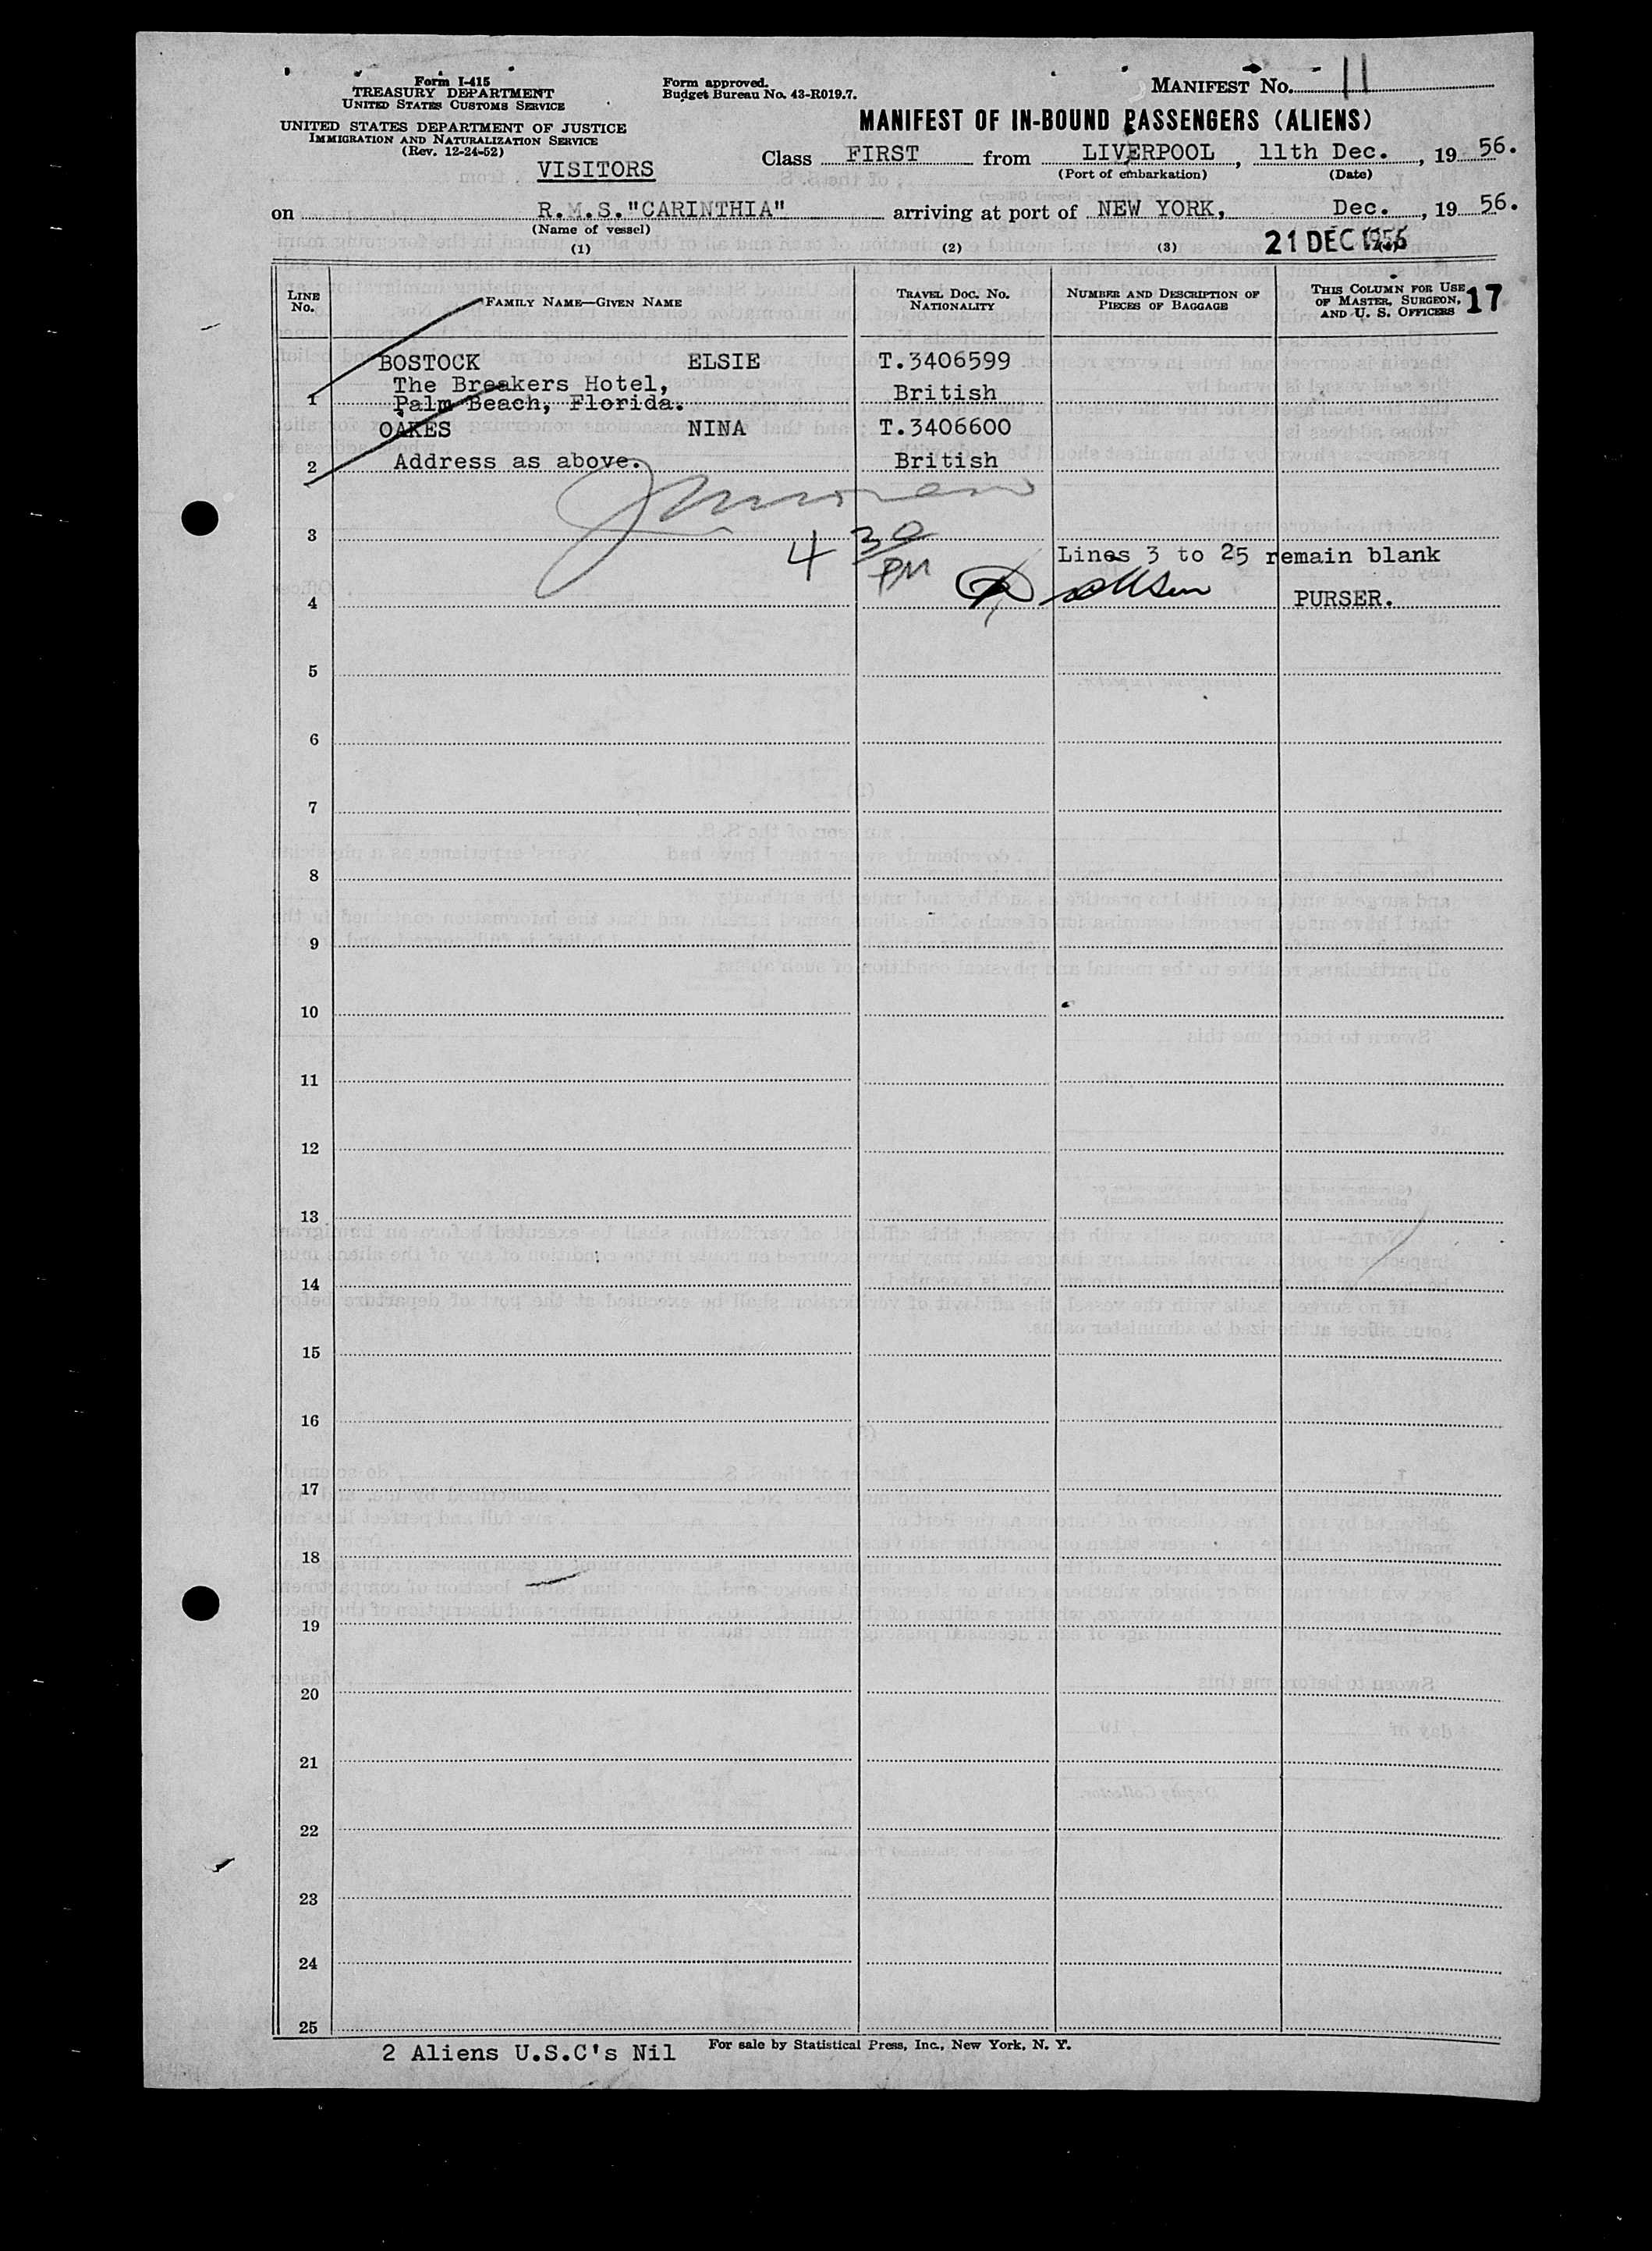 Form I-415
TREASURY DEPARTMENT
UNITED STATES CUSTOMS SERVICE
UNITED STATES DEPARTMENT OF JUSTICE
IMMIGRATION AND NATURALIZATION SERVICE
(Rev. 12-24-52)
Form approved.
Budget Bureau No. 43-R019.7.
MANIFEST No. 11
MANIFEST OF IN-BOUND PASSENGERS (ALIENS)
VISITORS
Class FIRST from LIVERPOOL, 11th Dec., 19 56.
(Port of embarkation) (Date)
on R.M.S."CARINTHIA" arriving at port of NEW YORK, Dec., 19 56.
(Name of vessel)
21 DEC 1956
(1) (2) (3) (4)
LINE No. FAMILY NAME—GIVEN NAME TRAVEL DOC. No. NATIONALITY NUMBER AND DESCRIPTION OF PIECES OF BAGGAGE THIS COLUMN FOR USE OF MASTER, SURGEON, AND U. S. OFFICERS 17
BOSTOCK ELSIE T.3406599
The Breakers Hotel,
1 Palm Beach, Florida. British
OAKES NINA T.3406600
2 Address as above. British
3
4 30 PM
Lines 3 to 25 remain blank
4 PURSER.
5
6
7
8
9
10
11
12
13
14
15
16
17
18
19
20
21
22
23
24
25
2 Aliens U.S.C's Nil
For sale by Statistical Press, Inc., New York, N. Y.